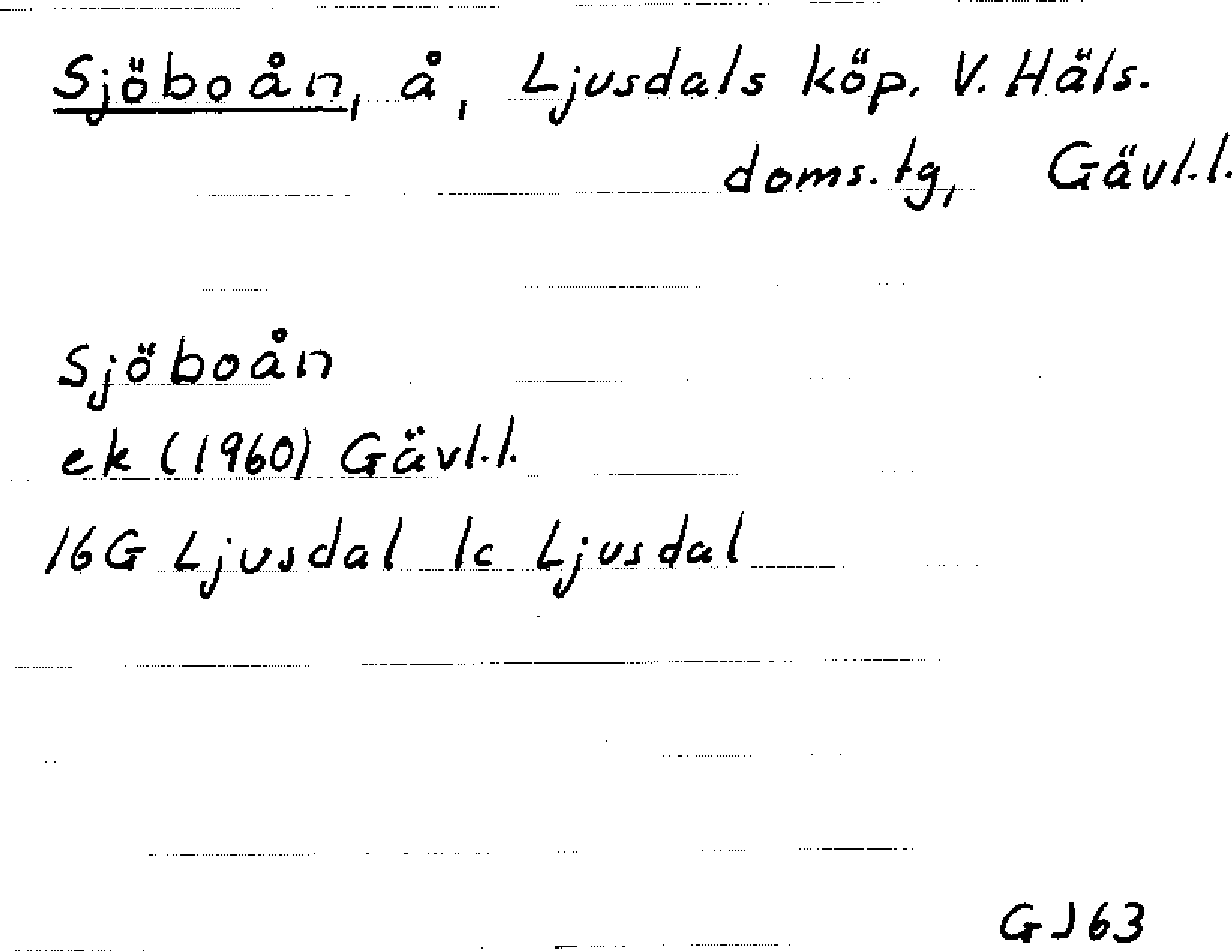 Sjöboån, å, Ljusdals köp. V. Häls.
doms.tg, Gävl.l.
Sjöboån
ek (1960) Gävl.l.
16G Ljusdal 1c Ljusdal
GJ63